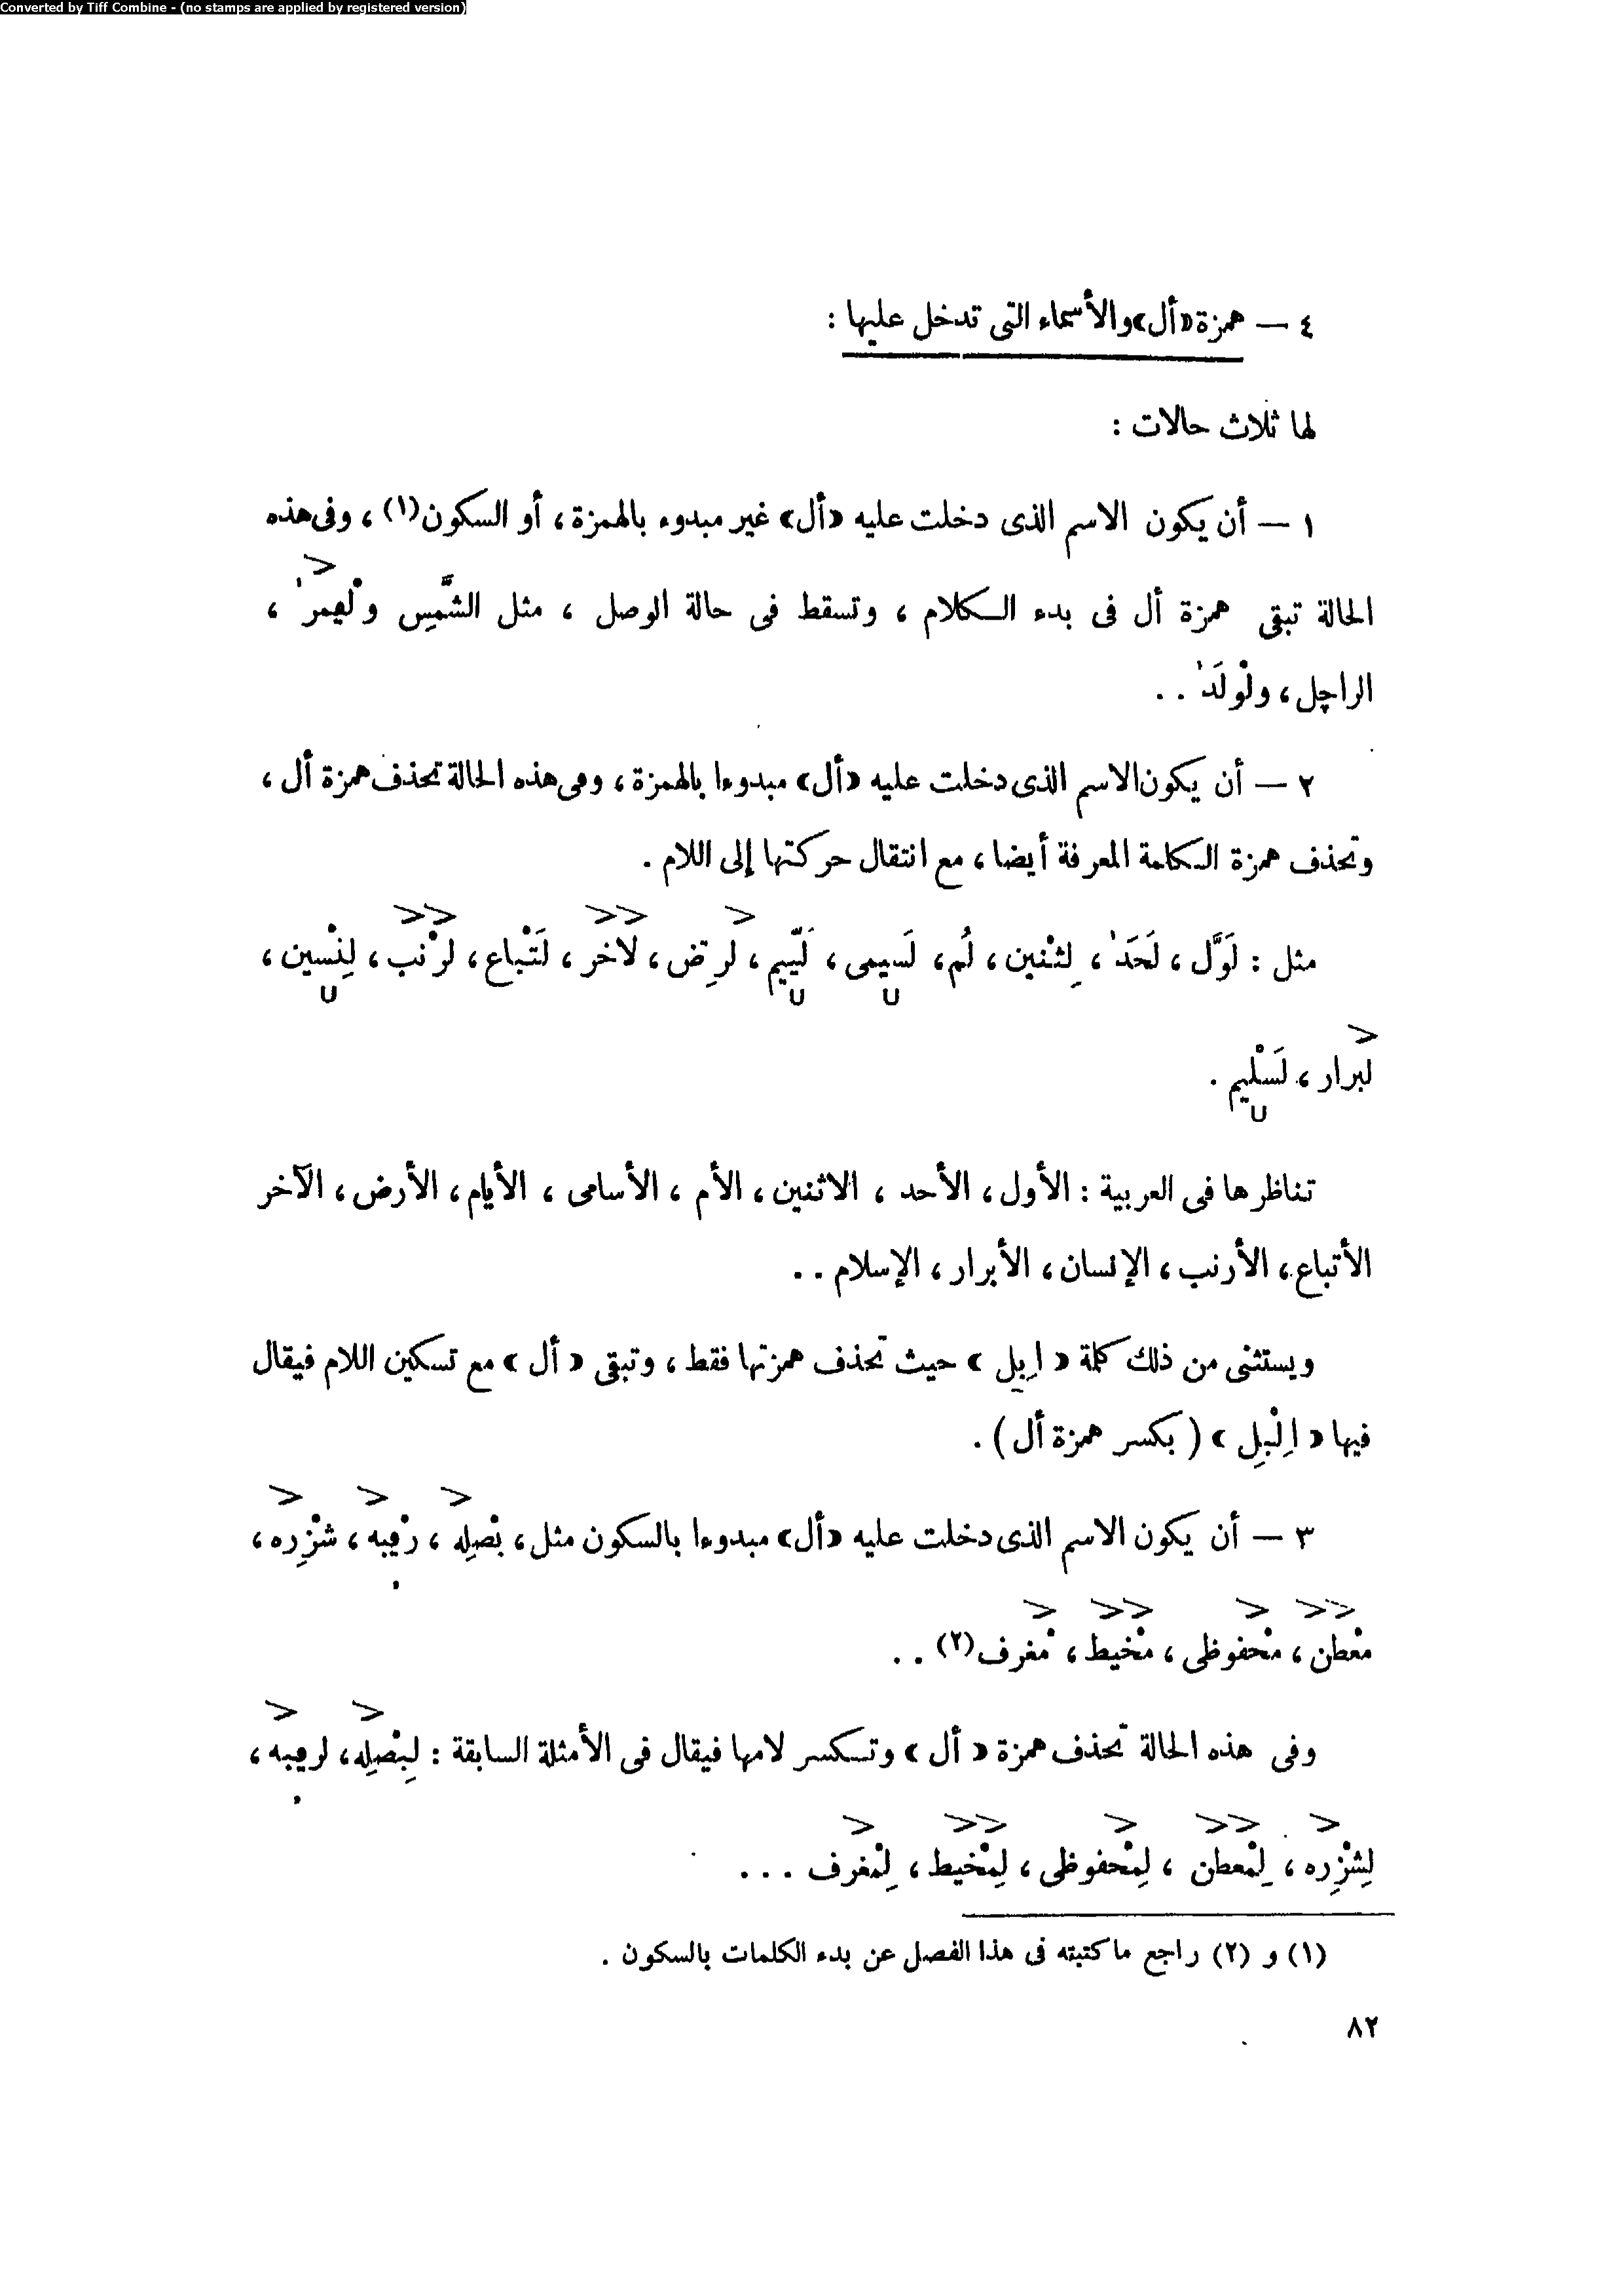 Converted by Tiff Combine - (no stamps are applied by registered version)
٤ — همزة «أل» والأسماء التى تدخل عليها :
لها ثلاث حالات :
١ — أن يكون الاسم الذى دخلت عليه «أل» غير مبدوء بالهمزة ، أو السكون(١) ، وفى هذه
الحالة تبقى همزة أل فى بدء الكلام ، وتسقط فى حالة الوصل ، مثل الشَّمِس ولْعمر ،
الراچل ، ولْولَد . .
٢ — أن يكون الاسم الذى دخلت عليه «أل» مبدوءا بالهمزة ، وفى هذه الحالة تحذف همزة أل ،
وتحذف همزة الكلمة المعرفة أيضا ، مع انتقال حركتها إلى اللام .
مثل : لَوَّل ، لَحَدَ ، لِثْنين ، لُم ، لَسيمى ، لَيّيم ، لرِض ، لاخر ، لَتْباع ، لرْنب ، لِنْسين ،
لبرار ، لَسْليم .
تناظرها فى العربية : الأول ، الأحد ، الاثنين ، الأم ، الأسامى ، الأيام ، الأرض ، الآخر
الأتباع ، الأرنب ، الإنسان ، الأبرار ، الإسلام . .
ويستثنى من ذلك كلمة « اِبِل » حيث تحذف همزتها فقط ، وتبقى « أل » مع تسكين اللام فيقال
فيها « اِلْبِل » ( بكسر همزة أل ) .
٣ — أن يكون الاسم الذى دخلت عليه «أل» مبدوءا بالسكون مثل ، بْصلِه ، رْڡبه ، شْزِره ،
مْعطن ، مْحفوظى ، مْخيط ، مْغرف(٢) . .
وفى هذه الحالة تحذف همزة « أل » وتكسر لامها فيقال فى الأمثلة السابقة : لِبْصلِه ، لرڡبه ،
لِشْزِره ، لِمْعطن ، لِمْحفوظى ، لِمْخيط ، لِمْغرف . . .
(١) و (٢) راجع ما كتبته فى هذا الفصل عن بدء الكلمات بالسكون .
٨٢